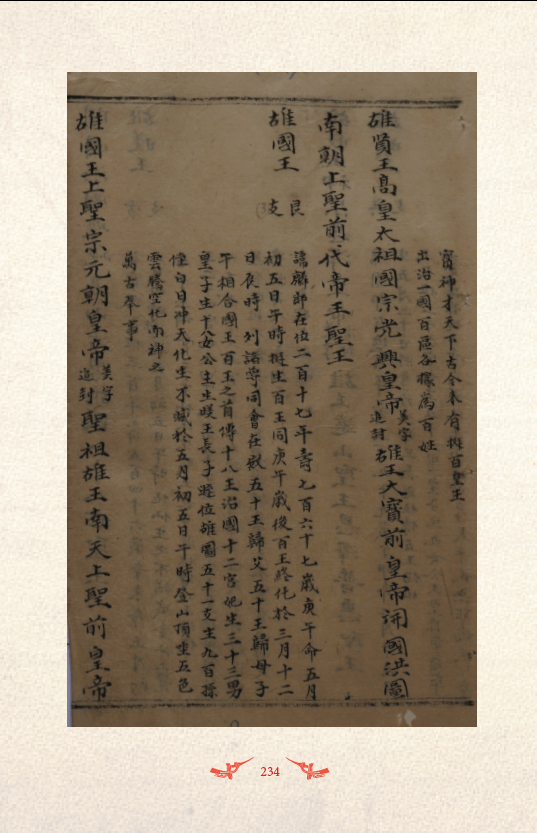 寶神才天下古今未有拁百皇王
出治一國百區各據為百姓
雄賢王高皇太祖國宗光興皇帝美字進封雄王大寶前皇帝開國洪圖
南朝上聖前代帝王聖王
雄國王 艮支
諱麟郎在位二百十七年壽七百六十七歲庚午命五月
初五日午時誕生百王同庚午歲後百王終化於三月十二
日辰時列諸學同會在獄五十王歸父五十王歸母子
午相合國王百王之首傳十八王治國十二宮妃生三十三男
皇子生十六公主生王長子位雄國五十一支生九百孫
像白日神天化生不滅於五月初五日午時登山頂坐五色
雲騰空化而神之
萬古奉事
雄國王上聖宗元朝皇帝美字進封聖祖雄王南天上聖前皇帝
234